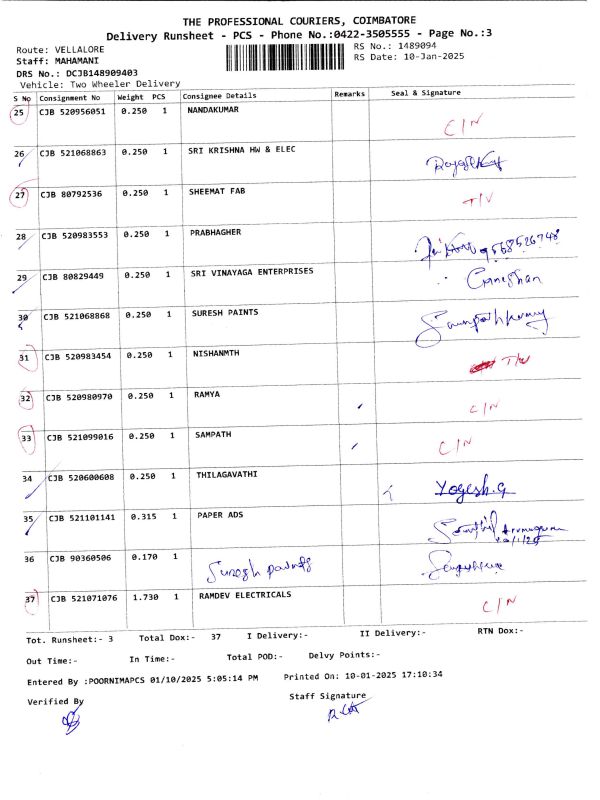 THE PROFESSIONAL COURIERS, COIMBATORE
Delivery Runsheet - PCS - Phone No.:0422-3505555 - Page No.:3
Route: VELLALORE RS No.: 1489094
Staff: MAHAMANI RS Date: 10-Jan-2025
DRS No.: DCJB148909403
Vehicle: Two Wheeler Delivery
S No Consignment No Weight PCS Consignee Details Remarks Seal & Signature
25 CJB 520956051 0.250 1 NANDAKUMAR C/N
26 CJB 521068863 0.250 1 SRI KRISHNA HW & ELEC
27 CJB 80792536 0.250 1 SHEEMAT FAB T/V
28 CJB 520983553 0.250 1 PRABHAGHER 9568526748
29 CJB 80829449 0.250 1 SRI VINAYAGA ENTERPRISES Ganeshan
30 CJB 521068868 0.250 1 SURESH PAINTS
31 CJB 520983454 0.250 1 NISHANMTH
32 CJB 520980970 0.250 1 RAMYA C/N
33 CJB 521099016 0.250 1 SAMPATH C/N
34 CJB 520600608 0.250 1 THILAGAVATHI Yogesh.G
35 CJB 521101141 0.315 1 PAPER ADS
36 CJB 90360506 0.170 1 Suresh paints
37 CJB 521071076 1.730 1 RAMDEV ELECTRICALS C/N
Tot. Runsheet:- 3 Total Dox:- 37 I Delivery:- II Delivery:- RTN Dox:-
Out Time:- In Time:- Total POD:- Delvy Points:-
Entered By :POORNIMAPCS 01/10/2025 5:05:14 PM Printed On: 10-01-2025 17:10:34
Verified By Staff Signature